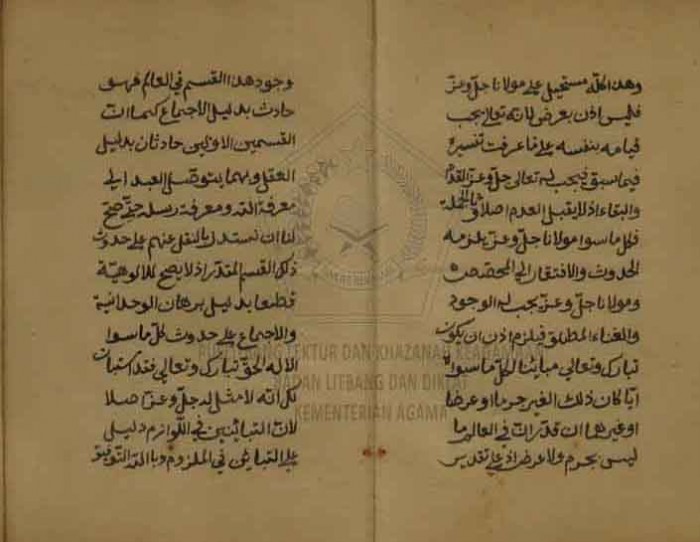 وهذا كله مستحيل على مولانا جل وعز
فليس اذن بعرض لانه تعالى يجب
قيامه بنفسه على ما عرفت تفسيره
فيما سبق ويجب له تعالى جل وعز القدم
والبقاء اذ لا يقبل العدم اصلا وبالجملة
فكل ما سوا مولانا جل وعز يلزمه
الحدوث والافتقار الى المخصص
ومولانا جل وعز يجب له الوجود
والغناء المطلق فيلزم اذن ان يكون
تبارك وتعالى مباينا لكل ما سواه
ايا كان ذلك الغير جرما او عرضا
او غيرهما ان قدر ان في العالم ما
ليس بجرم ولا عرض اذ على تقدير
وجود هذا القسم في العالم فهو
حادث بدليل الاجماع كما ان
القسمين الاولين حادثان بدليل
العقل وبهما يتوصل العبد الى
معرفة الله ومعرفة رسله حتى صح
لنا ان نستدل بالنقل عنهم على حدوث
ذلك القسم المقدر اذ لا يصح للالوهية
قطعا بدليل برهان الوحدانية
والاجماع على حدوث كل ما سوا
الاله الحق تبارك وتعالى فقد استبان
لك انه لا مثل له جل وعز اصلا
لان التباين في اللوازم دليل
على التباين في الملزوم وبالله التوفيق
PUSLITBANG LEKTUR DAN KHAZANAH KEAGAMAAN
BADAN LITBANG DAN DIKLAT
KEMENTERIAN AGAMA